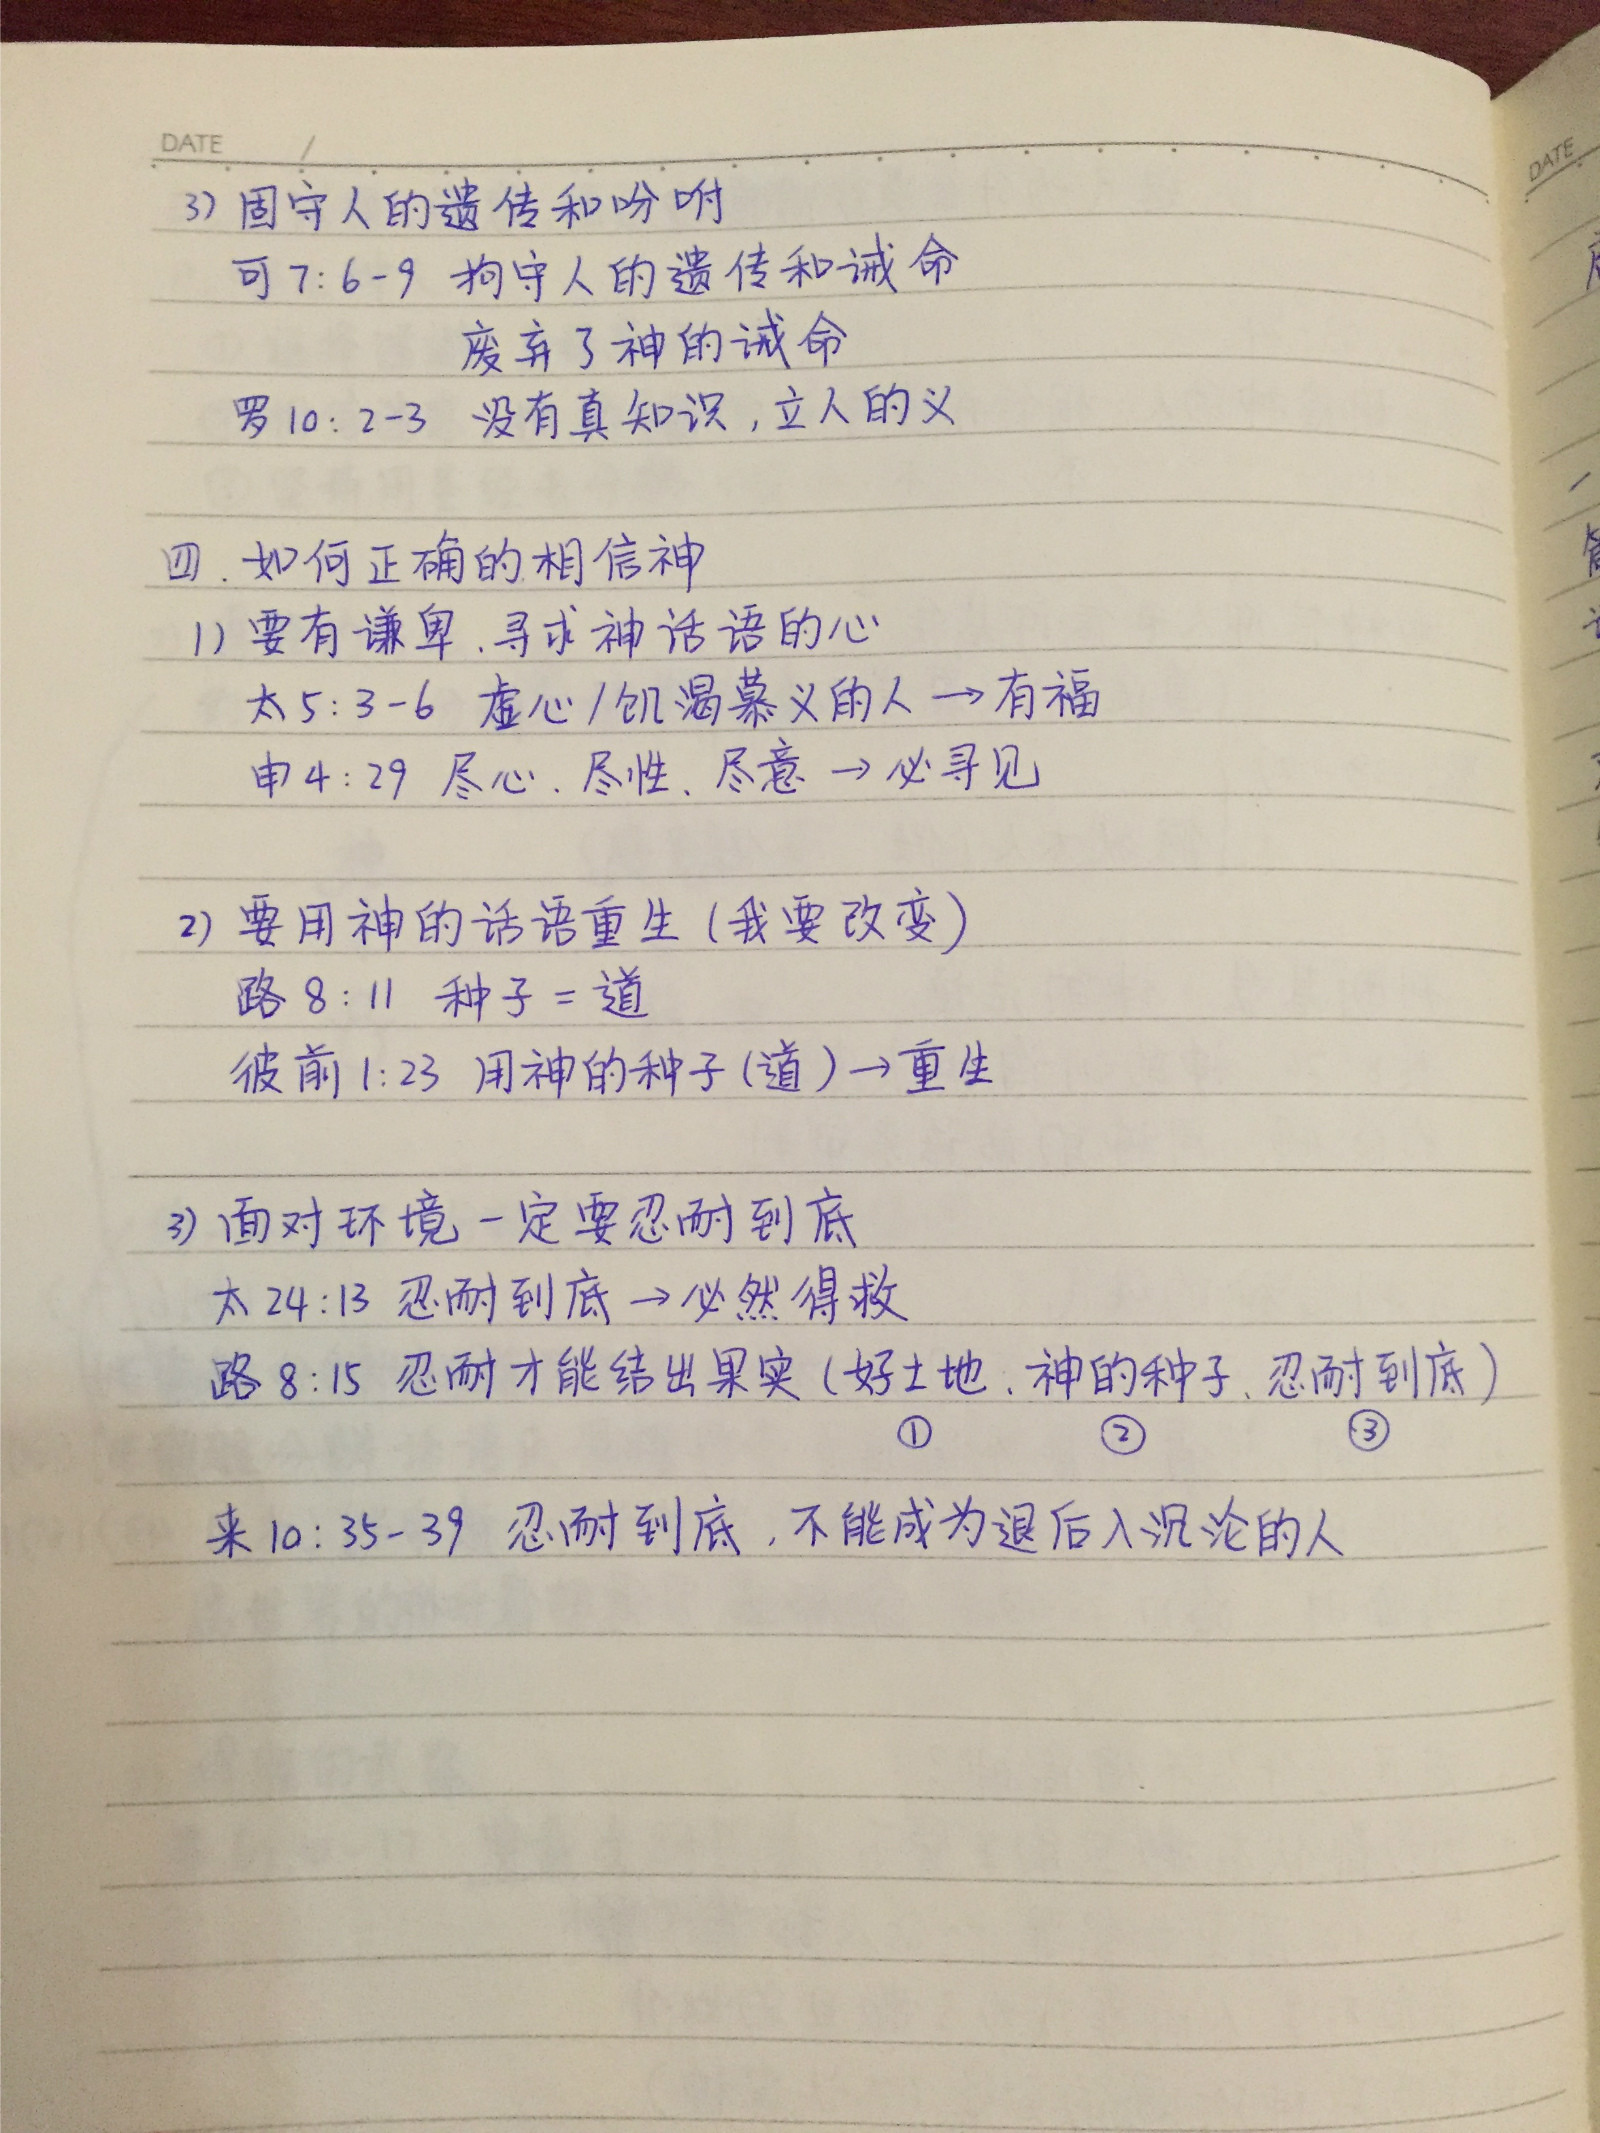 DATE /
3) 固守人的遗传和吩咐
可7:6-9 拘守人的遗传和诫命
废弃了神的诫命
罗10:2-3 没有真知识,立人的义
四.如何正确的相信神
1) 要有谦卑、寻求神话语的心
太5:3-6 虚心/饥渴慕义的人→有福
申4:29 尽心、尽性、尽意→必寻见
2) 要用神的话语重生(我要改变)
路8:11 种子=道
彼前1:23 用神的种子(道)→重生
3) 面对环境一定要忍耐到底
太24:13 忍耐到底→必然得救
路8:15 忍耐才能结出果实(好土地、神的种子、忍耐到底)
① ② ③
来10:35-39 忍耐到底,不能成为退后入沉沦的人
DATE